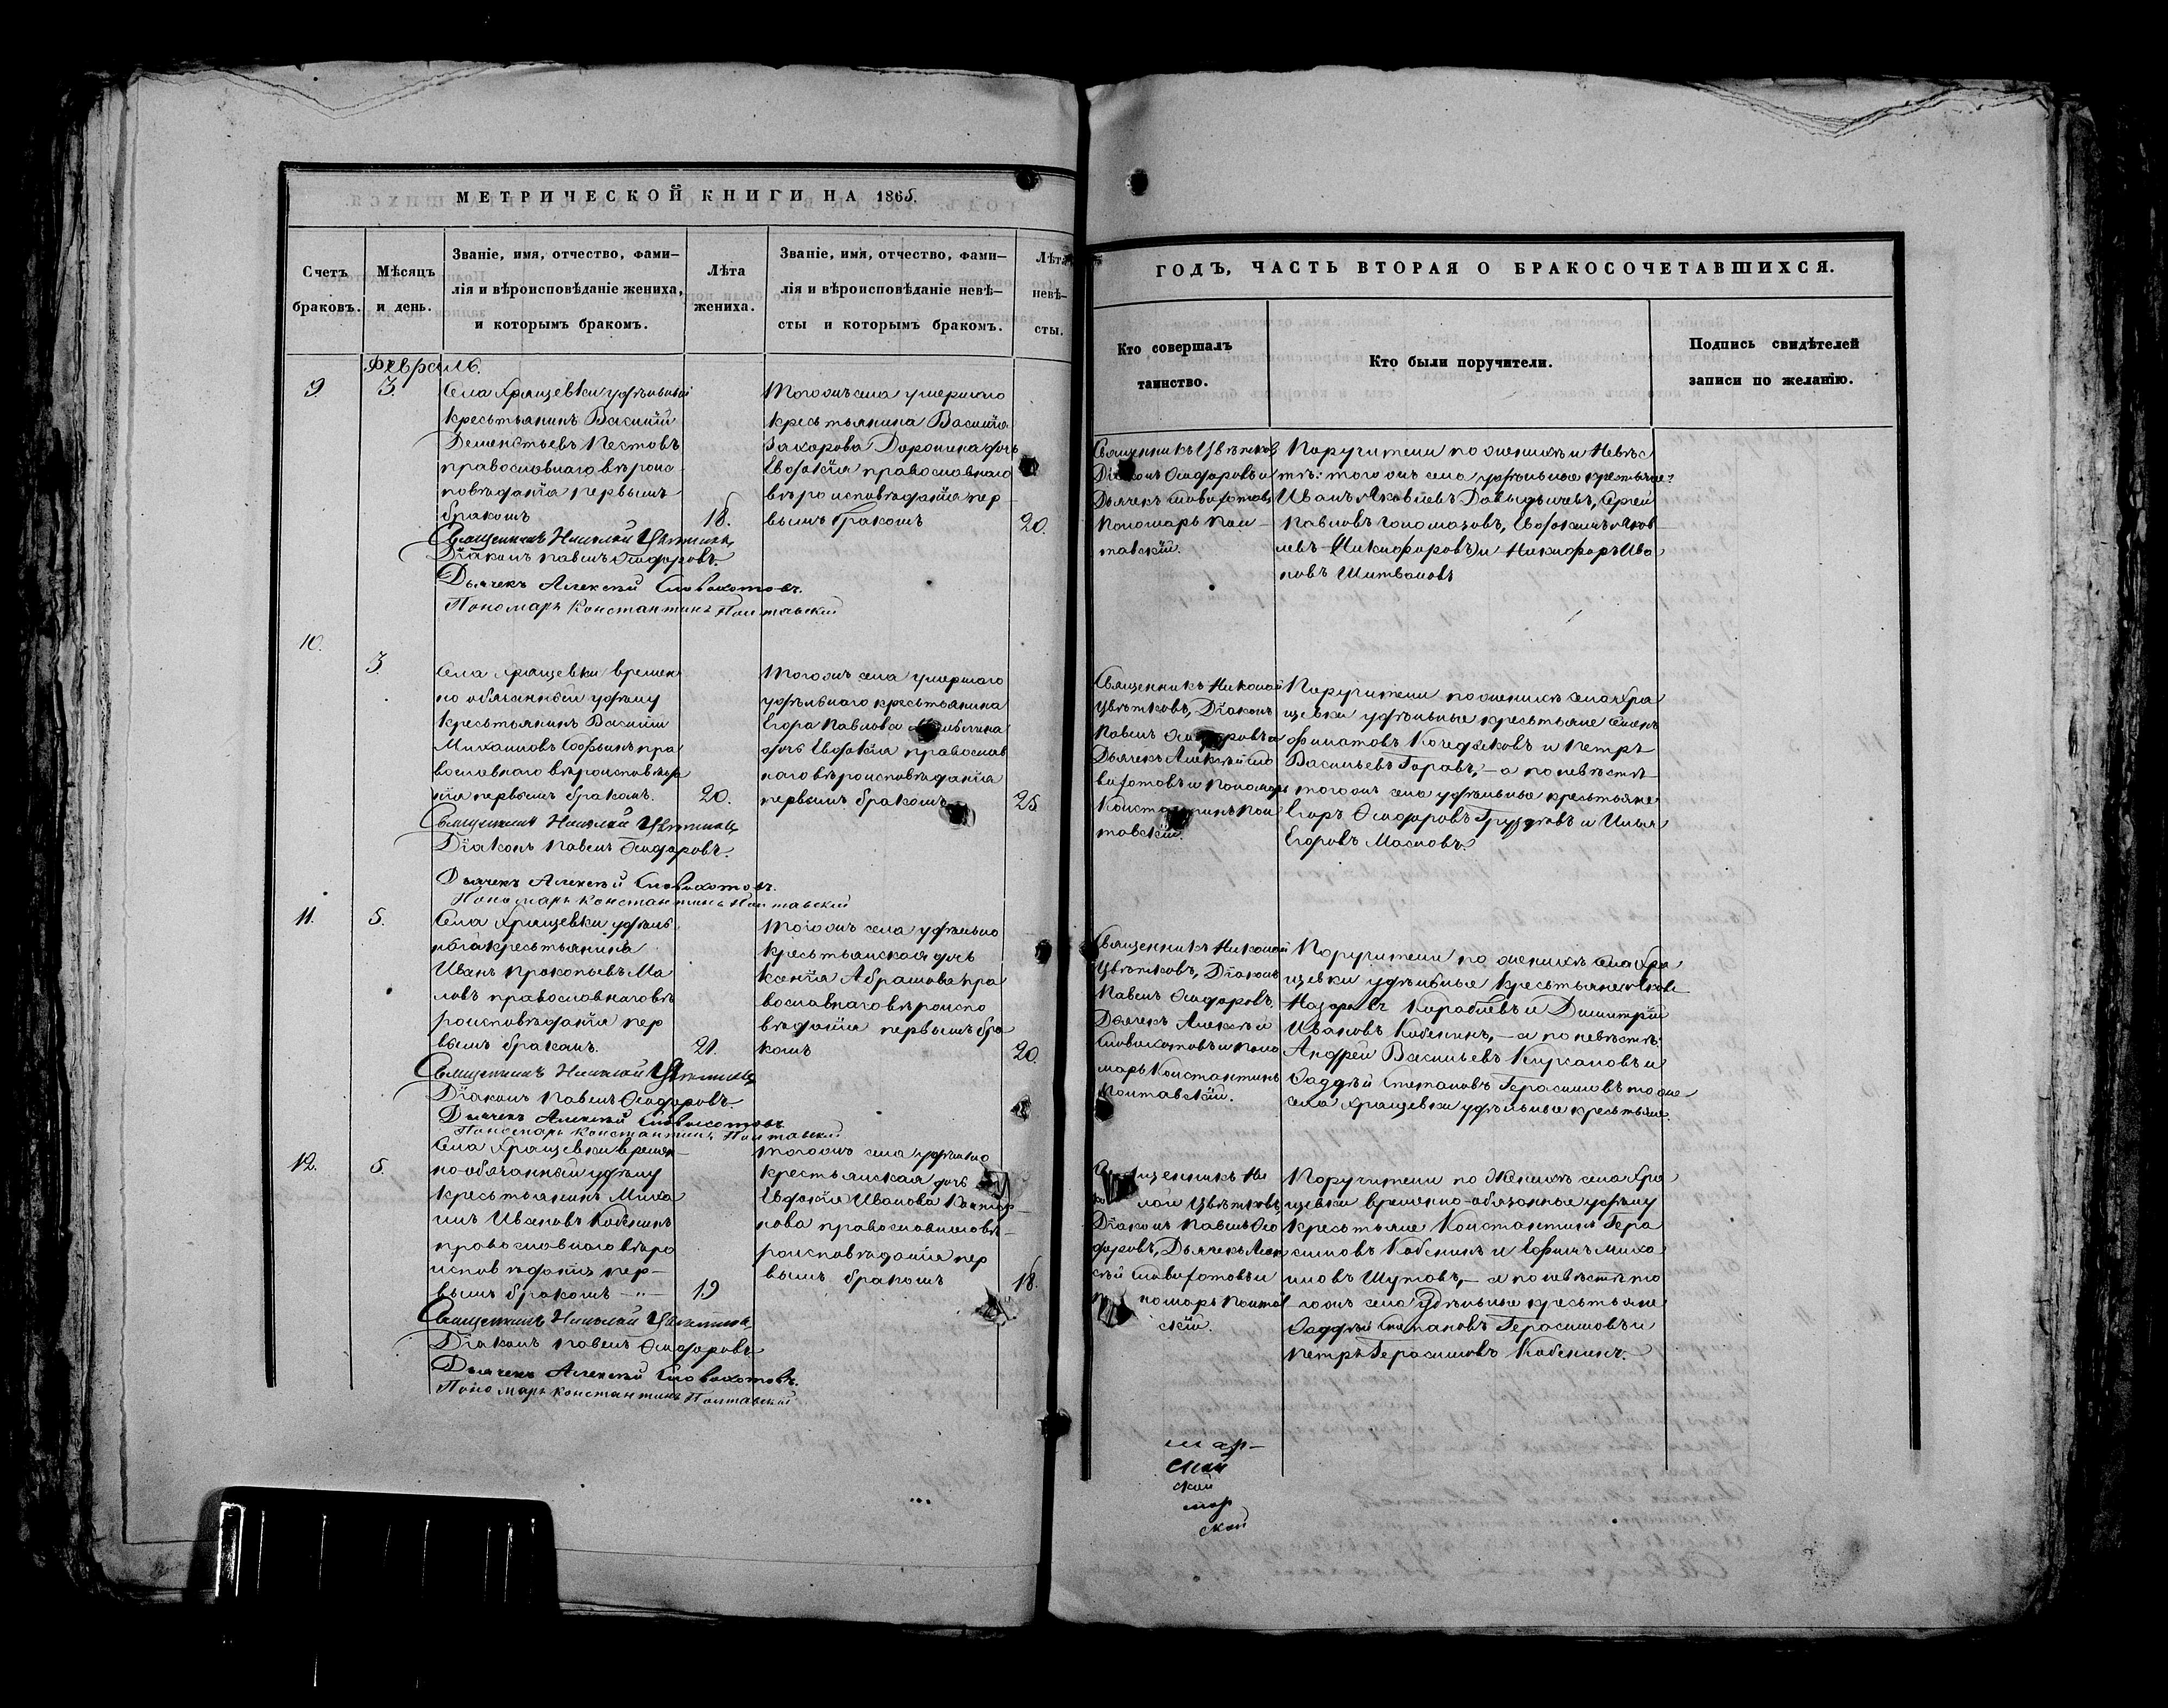 МЕТРИЧЕСКОЙ КНИГИ НА 1865.
Счетъ браковъ.
Мѣсяцъ и день.
Званіе, имя, отчество, фами-
лія и вѣроисповѣданіе жениха,
и которымъ бракомъ.
Лѣта жениха.
Званіе, имя, отчество, фами-
лія и вѣроисповѣданіе невѣ-
сты и которымъ бракомъ.
Лѣта невѣ-
сты.
Февраль.
9. 3.
Села Хрящевки удѣльный
крестьянинъ Василій
Дементьевъ Пестовъ
православнаго вѣроис-
повѣданія первымъ
бракомъ
18.
Священникъ Николай Цвѣтковъ
Діаконъ Павелъ Ѳеодоровъ.
Дьячекъ Алексѣй Словохотовъ.
Пономарь Константинъ Полтавскій
Тогожъ села умершаго
крестьянина Василія
Захарова Доронина дочь
Евдокія православнаго
вѣроисповѣданія пер
вымъ бракомъ
20.
10.
3.
Села Хрящевки времен
но обязанный удѣлу
крестьянинъ Василій
Михаиловъ Софьинъ пра
вославнаго вѣроисповѣда
нія первымъ бракомъ.
20.
Священникъ Николай Цвѣтковъ
Діаконъ Павелъ Ѳеодоровъ.
Дьячекъ Алексѣй Словохотовъ.
Пономарь Константинъ Полтавскій
Тогожъ села умершаго
удѣльнаго крестьянина
Егора Павлова
дочь Евдокія православ
наго вѣроисповѣданія
первымъ бракомъ
25
11. 5.
Села Хрящевки удѣль
наго крестьянина
Иванъ Прокопьевъ Ма
ловъ православнаго вѣ
роисповѣданія пер
вымъ бракомъ.
21.
Священникъ Николай Цвѣтковъ
Діаконъ Павелъ Ѳеодоровъ.
Дьячекъ Алексѣй Словохотовъ
Пономарь Константинъ Полтавскій
Тогожъ села удѣльно
крестьянская дочь
Ксенія Абрамова пра
вославнаго вѣроиспо
вѣданія первымъ бра
комъ
20.
12. 5.
Села Хрящевки времен-
но обязанный удѣлу
крестьянинъ Миха
илъ Ивановъ Кабенинъ
православнаго вѣро
исповѣданія пер-
вымъ бракомъ
19
Священникъ Николай Цвѣтковъ
Діаконъ Павелъ Ѳеодоровъ
Дьячекъ Алексѣй Словохотовъ.
Пономарь Константинъ Полтавскій
Тогожъ села удѣльно
крестьянская дочь
Евдокія Иванова
нова православнаго вѣ-
роисповѣданія пер
вымъ бракомъ
18.
ГОДЪ, ЧАСТЬ ВТОРАЯ О БРАКОСОЧЕТАВШИХСЯ.
Кто совершалъ таинство.
Кто были поручители.
Подпись свидѣтелей
записи по желанію.
Священникъ Цвѣтковъ
Діаконъ Ѳеодоровъ и
Дьячекъ Словохотовъ
Пономарь Пол-
тавскій.
Поручители по женихѣ и Невѣс
тѣ: тогожъ села удѣльные крестьяне:
Иванъ Яковлевъ Давыдычевъ, Сергѣй
Павловъ Голомазовъ, Евдокимъ Яков
левъ (Никифоровъ) и Никифоръ Ива
новъ
Священникъ Николай
Цвѣтковъ, Діаконъ
Павелъ Ѳеодоровъ и
Дьячекъ Алексѣй Сло
вохотовъ и Пономарь
Константинъ Пол
тавскій.
Поручители по женихѣ села Хря
щевки удѣльные крестьяне Семенъ
Филатовъ Кочедыковъ и Петръ
Васильевъ Горовъ, - а по невѣстѣ
тогожъ села удѣльные крестьяне
Егоръ Ѳеодоровъ Груздовъ и Илья
Егоровъ Масловъ.
Священникъ Николай
Цвѣтковъ, Діаконъ
Павелъ Ѳеодоровъ,
Дьячекъ Алексѣй
Словохотовъ и Поно
марь Константинъ
Полтавскій.
Поручители по женихѣ села Хря
щевки удѣльные крестьяне Яковъ
Назаровъ Карабаевъ и Димитрій
Ивановъ Кабенинъ, - а по невѣстѣ:
Андрей Васильевъ Кирсановъ и
Ѳаддѣй Степановъ Герасимовъ тогоже
села Хрящевки удѣльные крестьяне.
Священникъ Ни
колай Цвѣтковъ,
Діаконъ Павелъ Ѳео
доровъ, Дьячекъ Алек
сѣй Словохотовъ и
Пономарь Полтав
скій.
Поручители по Женихѣ села Хря
щевки временно-обязанные удѣлу
крестьяне Константинъ Гера
симовъ Кабенинъ и Ефимъ Миха
иловъ Шутовъ, - а по невѣстѣ то
гожъ села Удѣльные крестьяне
Ѳаддѣй Степановъ Герасимовъ и
Петръ Герасимовъ Кабенинъ.